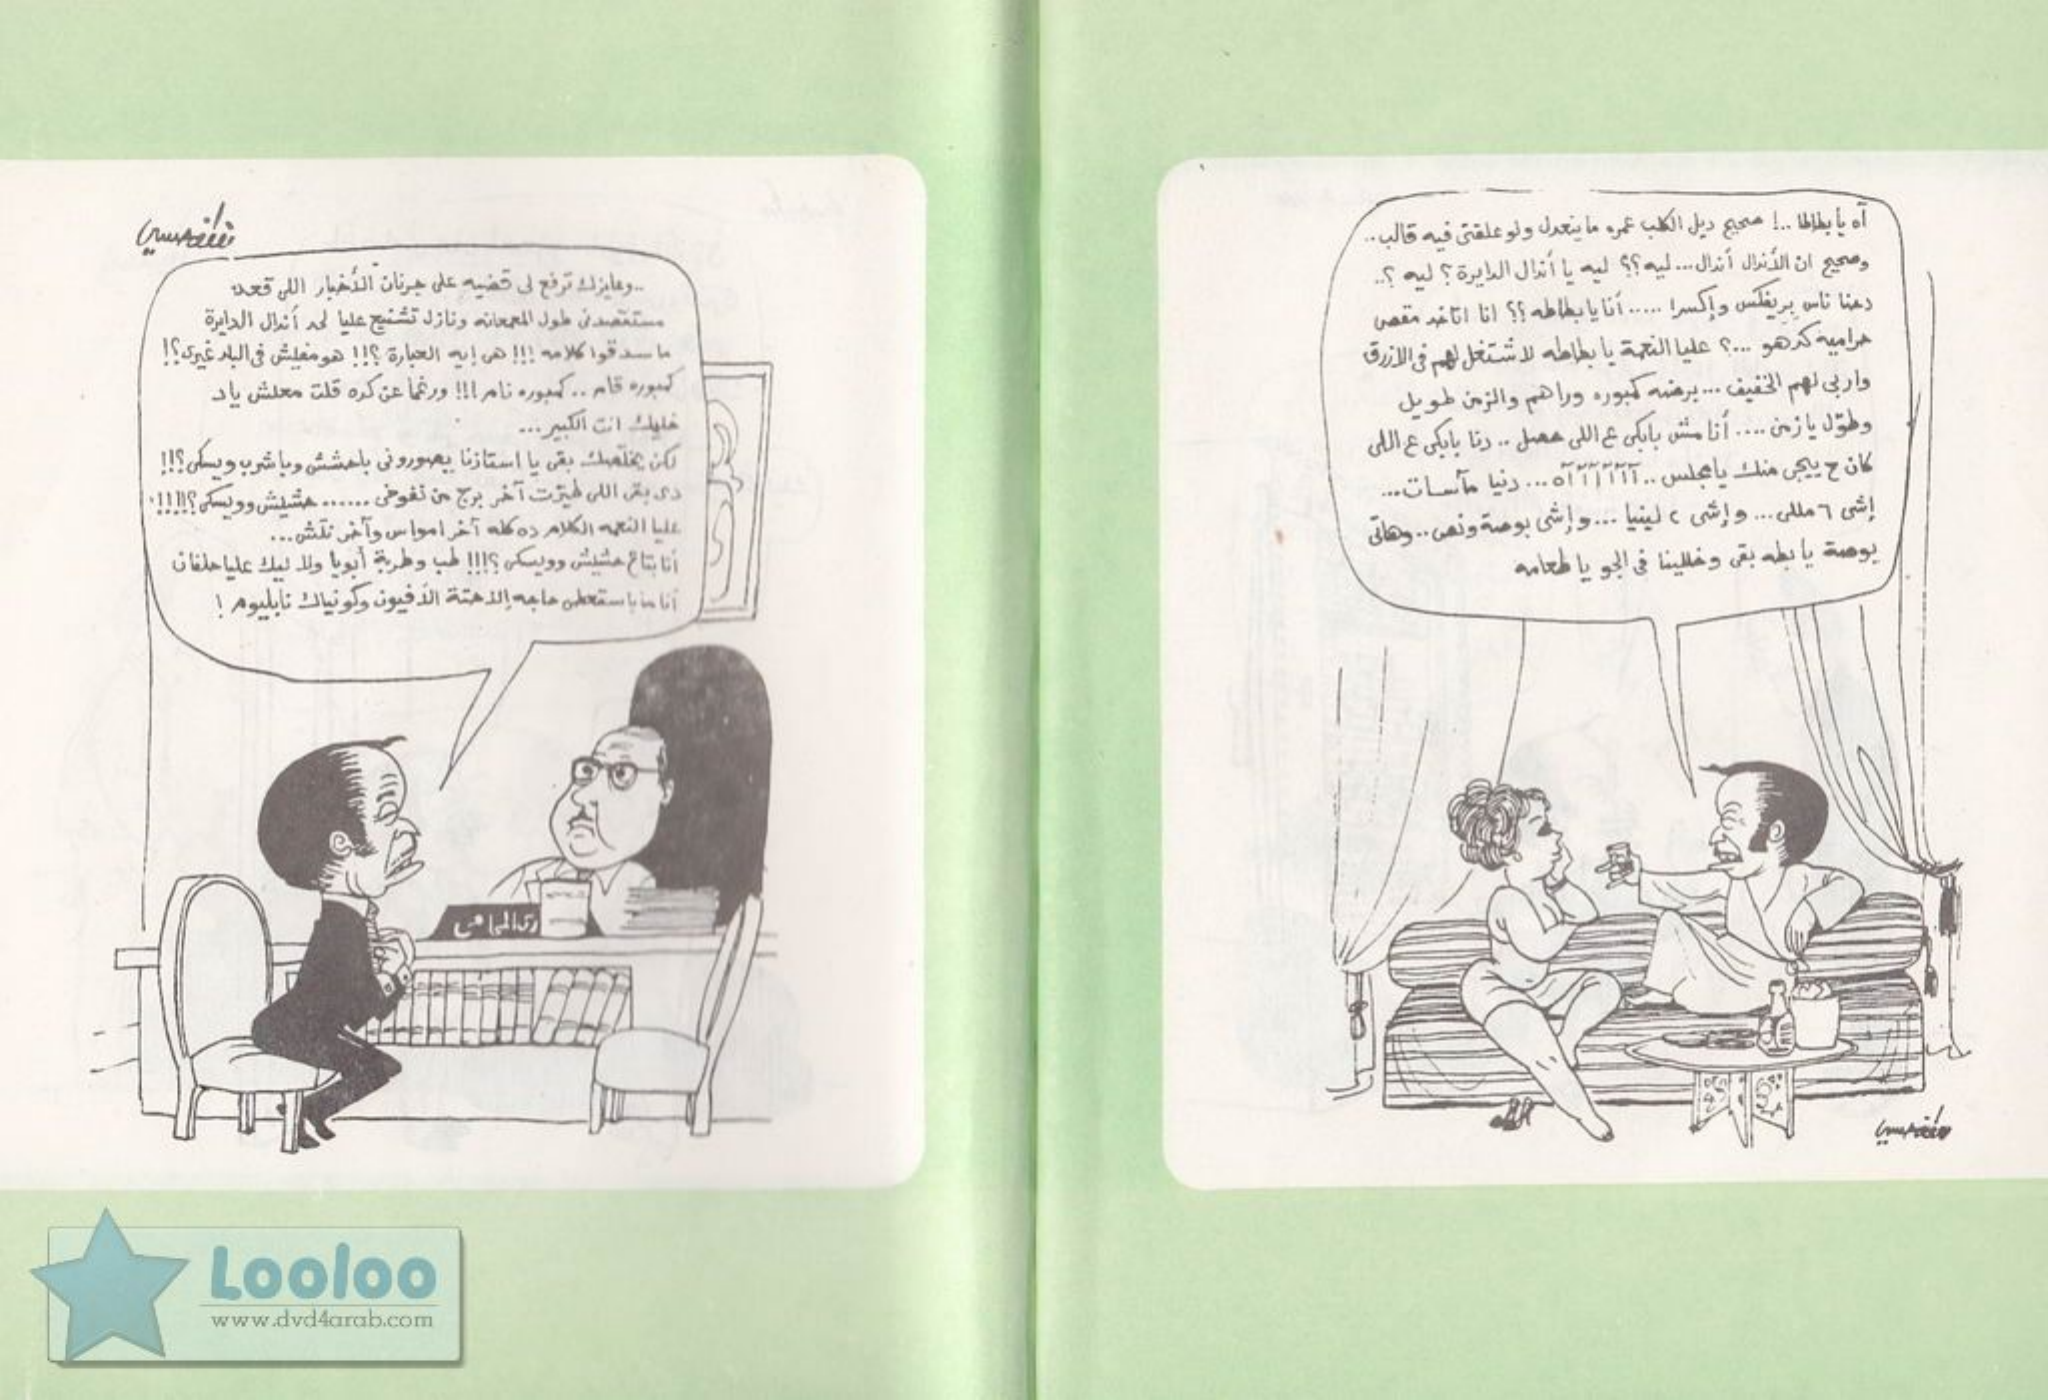 آه يا بطاطا ..! صحيح ديل الكلب عمره ما ينعدل ولو علقتى فيه قالب..
وصحيح ان الأندال أندال... ليه؟؟ ليه يا أندال الدايرة؟ ليه ؟..
دحنا ناس بريفكس وإكسرا ..... أنا يا بطاطه ؟؟ انا اتاخد مقص
حراميه كدهو ...؟ عليا النعمة يا بطاطه لاشتغل لهم فى الازرق
واربى لهم الخفيف ... برضه كمبوره وراهم والزمن طويل
وطوّل يا زمن .... أنا مش بابكى ع اللى حصل .. دنا بابكى ع اللى
كان ح ييجى منك يا مجلس .. آآآآآآآه ... دنيا مآسات ...
إشى ٦ مللى ... وإشى ٢ لينيا ... وإشى بوصة ونص .. وهاتى
بوصة يا بطه بقى وخللينا فى الجو يا طعامه
..وعايزك ترفع لى قضيه على جرنان الأخبار اللى قعد
مستقصدنى طول المعمعانه ونازل تشنيع عليا لحد أندال الدايرة
ما سدقوا كلامه !!! هى إيه العبارة ؟!! هو مفيش فى البلد غيرى؟!
كمبوره قام .. كمبوره نام !!! ورغماً عن كده قلت معلش ياد
خليك انت الكبير ...
لكن يخلّصك بقى يا استازنا يصورونى باحشش وباشرب ويسكى؟!!
دى بقى اللى طيّرت آخر برج من نفوخى ...... حشيش وويسكى؟!!!!
عليا النعمه الكلام ده كله آخر امواس وآخر تلش ...
أنا بتاع حشيش وويسكى ؟!!! طب وطربة أبويا ولك عليا حلفان
أنا ما باستعطى حاجه إلا حتة الأفيون وكونياك نابليوم !
المحامى
Looloo
www.dvd4arab.com